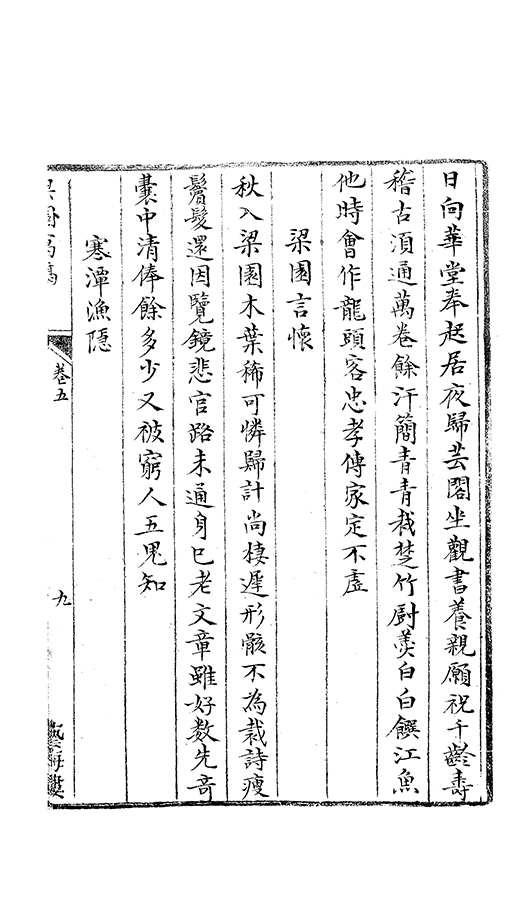 日向華堂奉起居夜歸芸閣坐觀書養親願祝千齡壽
稽古須通萬卷餘汗簡青青栽楚竹廚羮白白饌江魚
他時會作龍頭客忠孝傳家定不虛
梁園言懷
秋入梁園木葉稀可憐歸計尚棲遲形骸不為裁詩瘦
鬢髮還因覽鏡悲官路未通身已老文章雖好數先竒
囊中清俸餘多少又被窮人五鬼知
寒潭漁隱
卷五
九